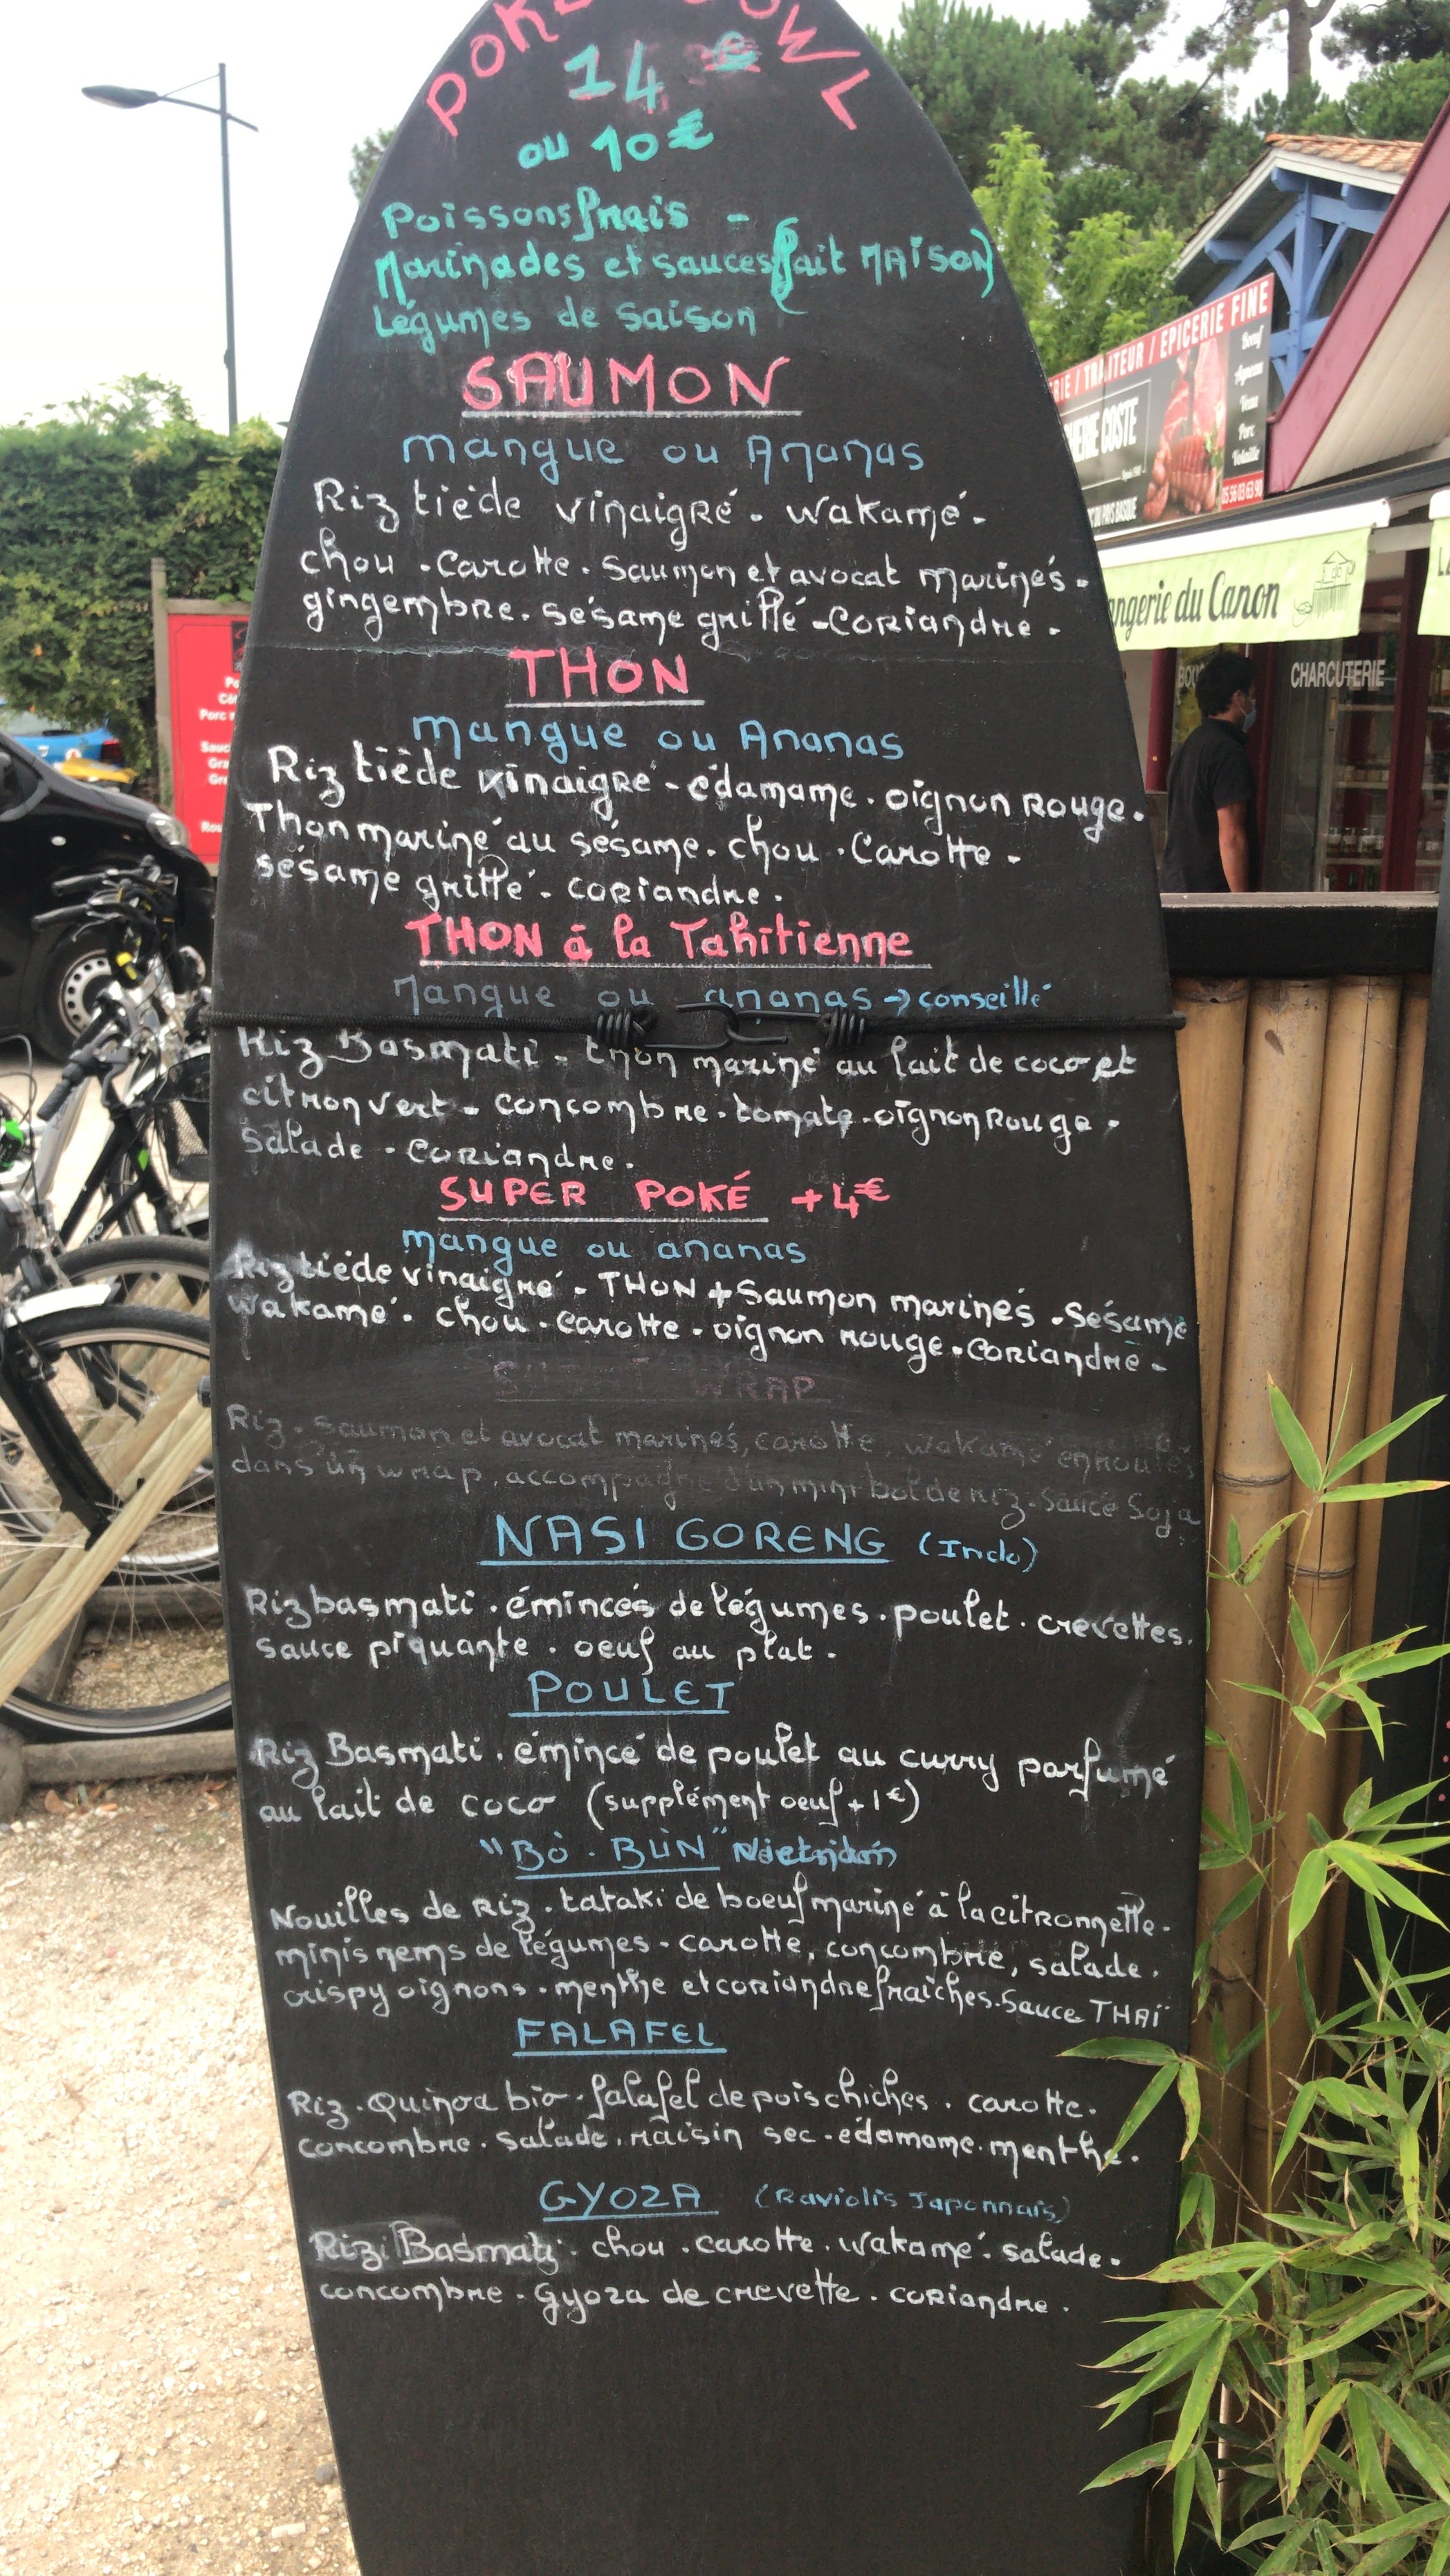 POKE BOWL
14 €
ou 10 €
Poissons frais -
Marinades et sauces (fait MAISON)
Légumes de saison
SAUMON
mangue ou Ananas
Riz tiède vinaigré - wakamé -
chou . Carotte . Saumon et avocat marinés -
gingembre . sésame grillé - Coriandre .
THON
mangue ou Ananas
Riz tiède vinaigré - édamame . oignon Rouge .
Thon mariné au sésame . chou . Carotte -
sésame grillé - Coriandre .
THON à la Tahitienne
Mangue ou ananas → conseillé
Riz Basmati - thon mariné au lait de coco et
citron vert - concombre . tomate . oignon Rouge .
Salade . Coriandre .
SUPER POKÉ +4€
mangue ou ananas
Riz tiède vinaigré - THON + Saumon marinés . Sésame
wakamé . chou . carotte . oignon rouge . Coriandre -
WRAP
Riz . Saumon et avocat marinés, carotte, wakamé enroulés
dans un wrap, accompagné d'un mini bol de riz . sauce Soja
NASI GORENG (Indo)
Riz basmati . émincés de légumes . poulet . crevettes .
sauce piquante . oeuf au plat .
POULET
Riz Basmati . émincé de poulet au curry parfumé
au lait de coco (supplément oeuf + 1€)
"BÒ . BÙN"
Nouilles de Riz . tataki de boeuf mariné à la citronnelle -
minis nems de légumes - carotte, concombre, salade .
crispy oignons . menthe et coriandre fraîches . Sauce THAÏ
FALAFEL
Riz . Quinoa bio - falafel de pois chiches . carotte .
Concombre . salade . raisin sec - édamame . menthe .
GYOZA (Raviolis Japonnais)
Riz Basmati . chou . carotte . wakamé . salade .
concombre - Gyoza de crevette . Coriandre .
TRAITEUR / EPICERIE FINE
COSTE
Boeuf
Agneau
Veau
Porc
Volaille
05 56 03 63 90
DU PAYS BASQUE
du Canon
CHARCUTERIE